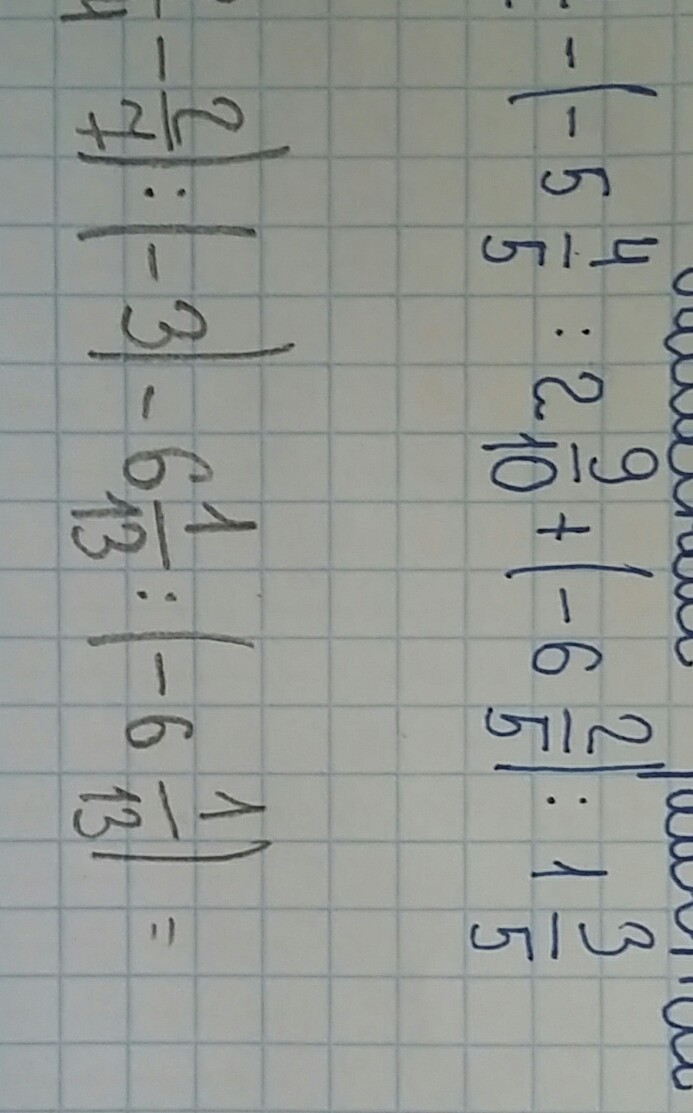 - (- 5 4/5 : 2 9/10 + (- 6 2/5) : 1 3/5
- 2/7) : (- 3) - 6 1/13 : (- 6 1/13) =